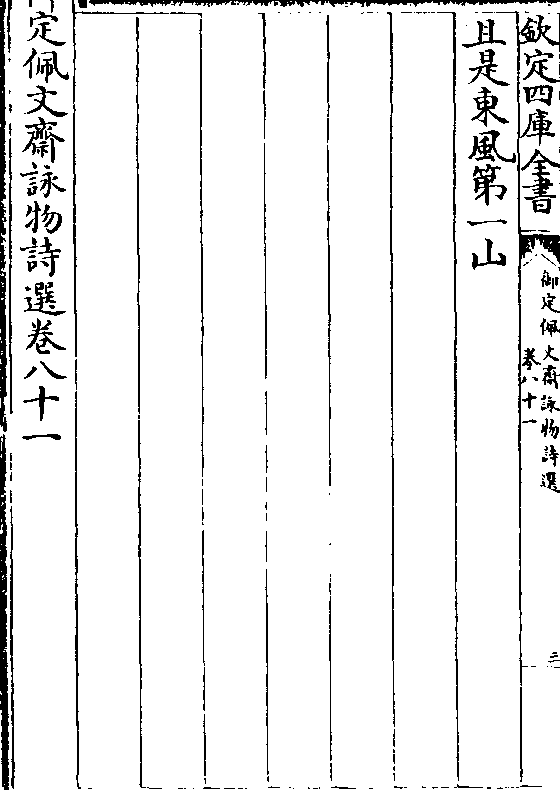 欽定四庫全書
御定佩文齋詠物詩選
卷八十一
三
且是東風第一山
定佩文齋詠物詩選卷八十一